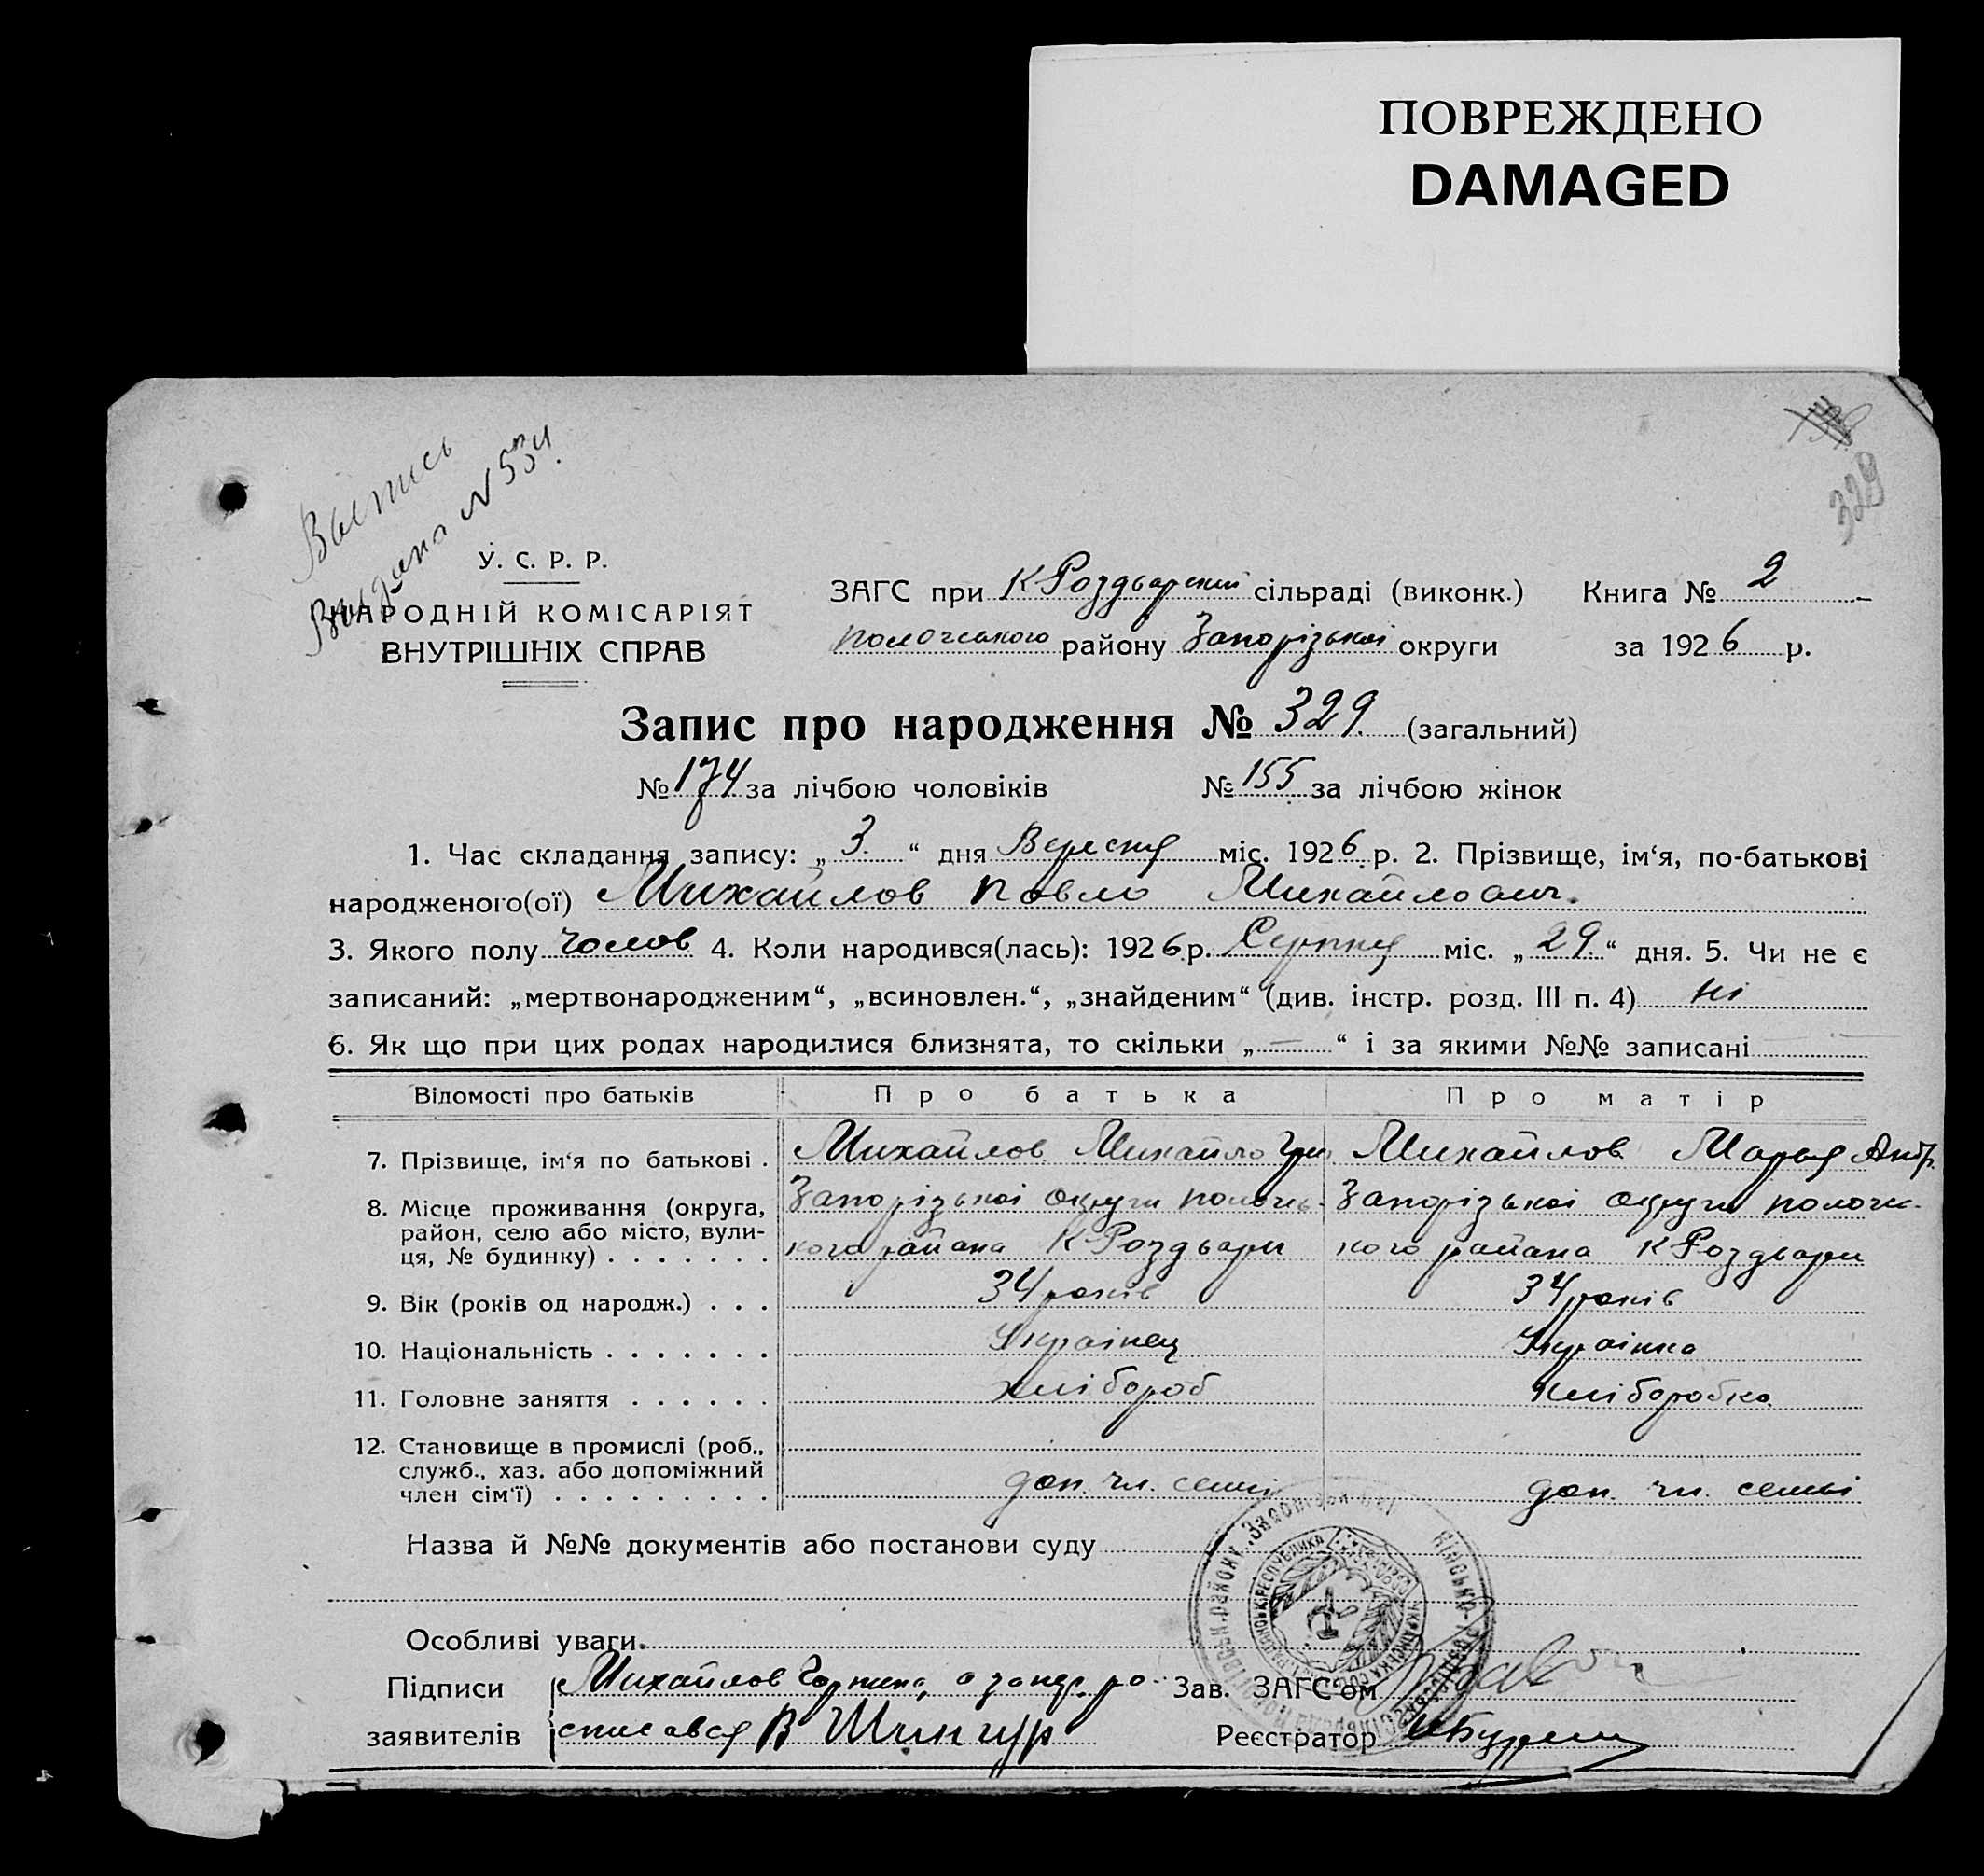 ПОВРЕЖДЕНО
DAMAGED
Выпись
Выдана N 534.
329
У. С. Р. Р.
НАРОДНІЙ КОМІСАРІЯТ
ВНУТРІШНІХ СПРАВ
ЗАГС при К Роздорский сільраді (виконк.) Книга № 2
пологського району Запорізькоі округи за 1926 р.
Запис про народження № 329. (загальний)
№ 174 за лічбою чоловіків № 155 за лічбою жінок
1. Час складання запису: „3.“ дня Вересня міс. 1926 р. 2. Прізвище, ім‘я, по-батькові
народженого(ої) Михайлов Повло Михайлович.
3. Якого полу чолов 4. Коли народився(лась): 1926 р. Серпня міс. „29.“ дня. 5. Чи не є
записаний: „мертвонародженим“, „всиновлен.“, „знайденим“ (див. інстр. розд. III п. 4) ні
6. Як що при цих родах народилися близнята, то скільки „—“ і за якими №№ записані
Відомості про батьків Про батька Про матір
7. Прізвище, ім‘я по батькові . Михайлов Михайло Гри Михайлов Марья Андр.
8. Місце проживання (округа, Запорізькоі округи пологь- Запорізькоі округи пологсь-
район, село або місто, вули-
ця, № будинку) . . . . . . . кого района К Роздьори кого района К Роздьори
9. Вік (років од народж.) . . . 34 років 34 років
10. Національність . . . . . . . Украінец Украінка
11. Головне заняття . . . . . . хлібороб хліборобка
12. Становище в промислі (роб.,
служб., хаз. або допоміжний
член сім‘ї) . . . . . . . . . доп. чл. семьі доп. чл. семьі
Назва й №№ документів або постанови суду
Особливі уваги.
Підписи Михайлов а за ро- Зав. ЗАГС‘ом
заявителів списався В Шингур Реєстратор